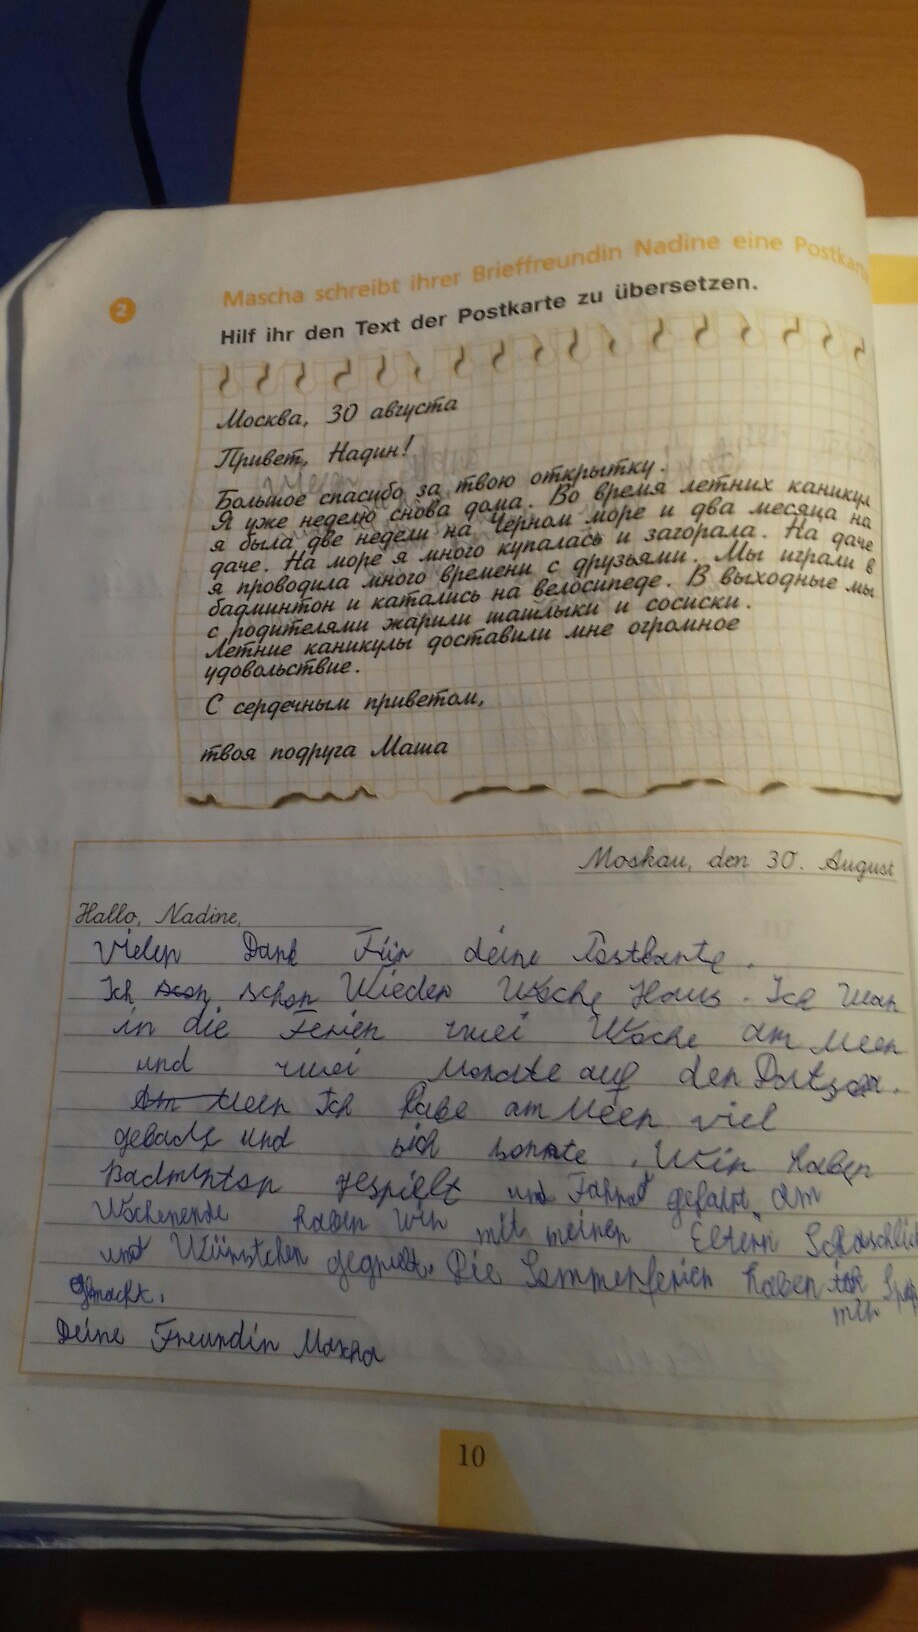 2
Mascha schreibt ihrer Brieffreundin Nadine eine
Hilf ihr den Text der Postkarte zu übersetzen.
Москва, 30 августа
Привет, Надин!
Большое спасибо за твою открытку.
Я уже неделю снова дома. Во время летних каникул
я была две недели на Черном море и два месяца на
даче. На море я много купалась и загорала. На даче
я проводила много времени с друзьями. Мы играли в
бадминтон и катались на велосипеде. В выходные мы
с родителями жарили шашлыки и сосиски.
Летние каникулы доставили мне огромное
удовольствие.
С сердечным приветом,
твоя подруга Маша
Moskau, den 30. August
Hallo, Nadine,
Vielen Dank Für deine Postkarte.
Ich schon Wieder Woche Haus. Ich War
in die Ferien zwei Woche am Meer
und zwei Monate auf der
Am Meer Ich habe am Meer viel
und sich sonnte. Wir haben
Badminton gespielt und gefahrt. Am
Wochenende haben wir mit meinen Eltern
und Würstchen Die Sommerferien haben
mir
gemacht.
Deine Freundin Mascha
10